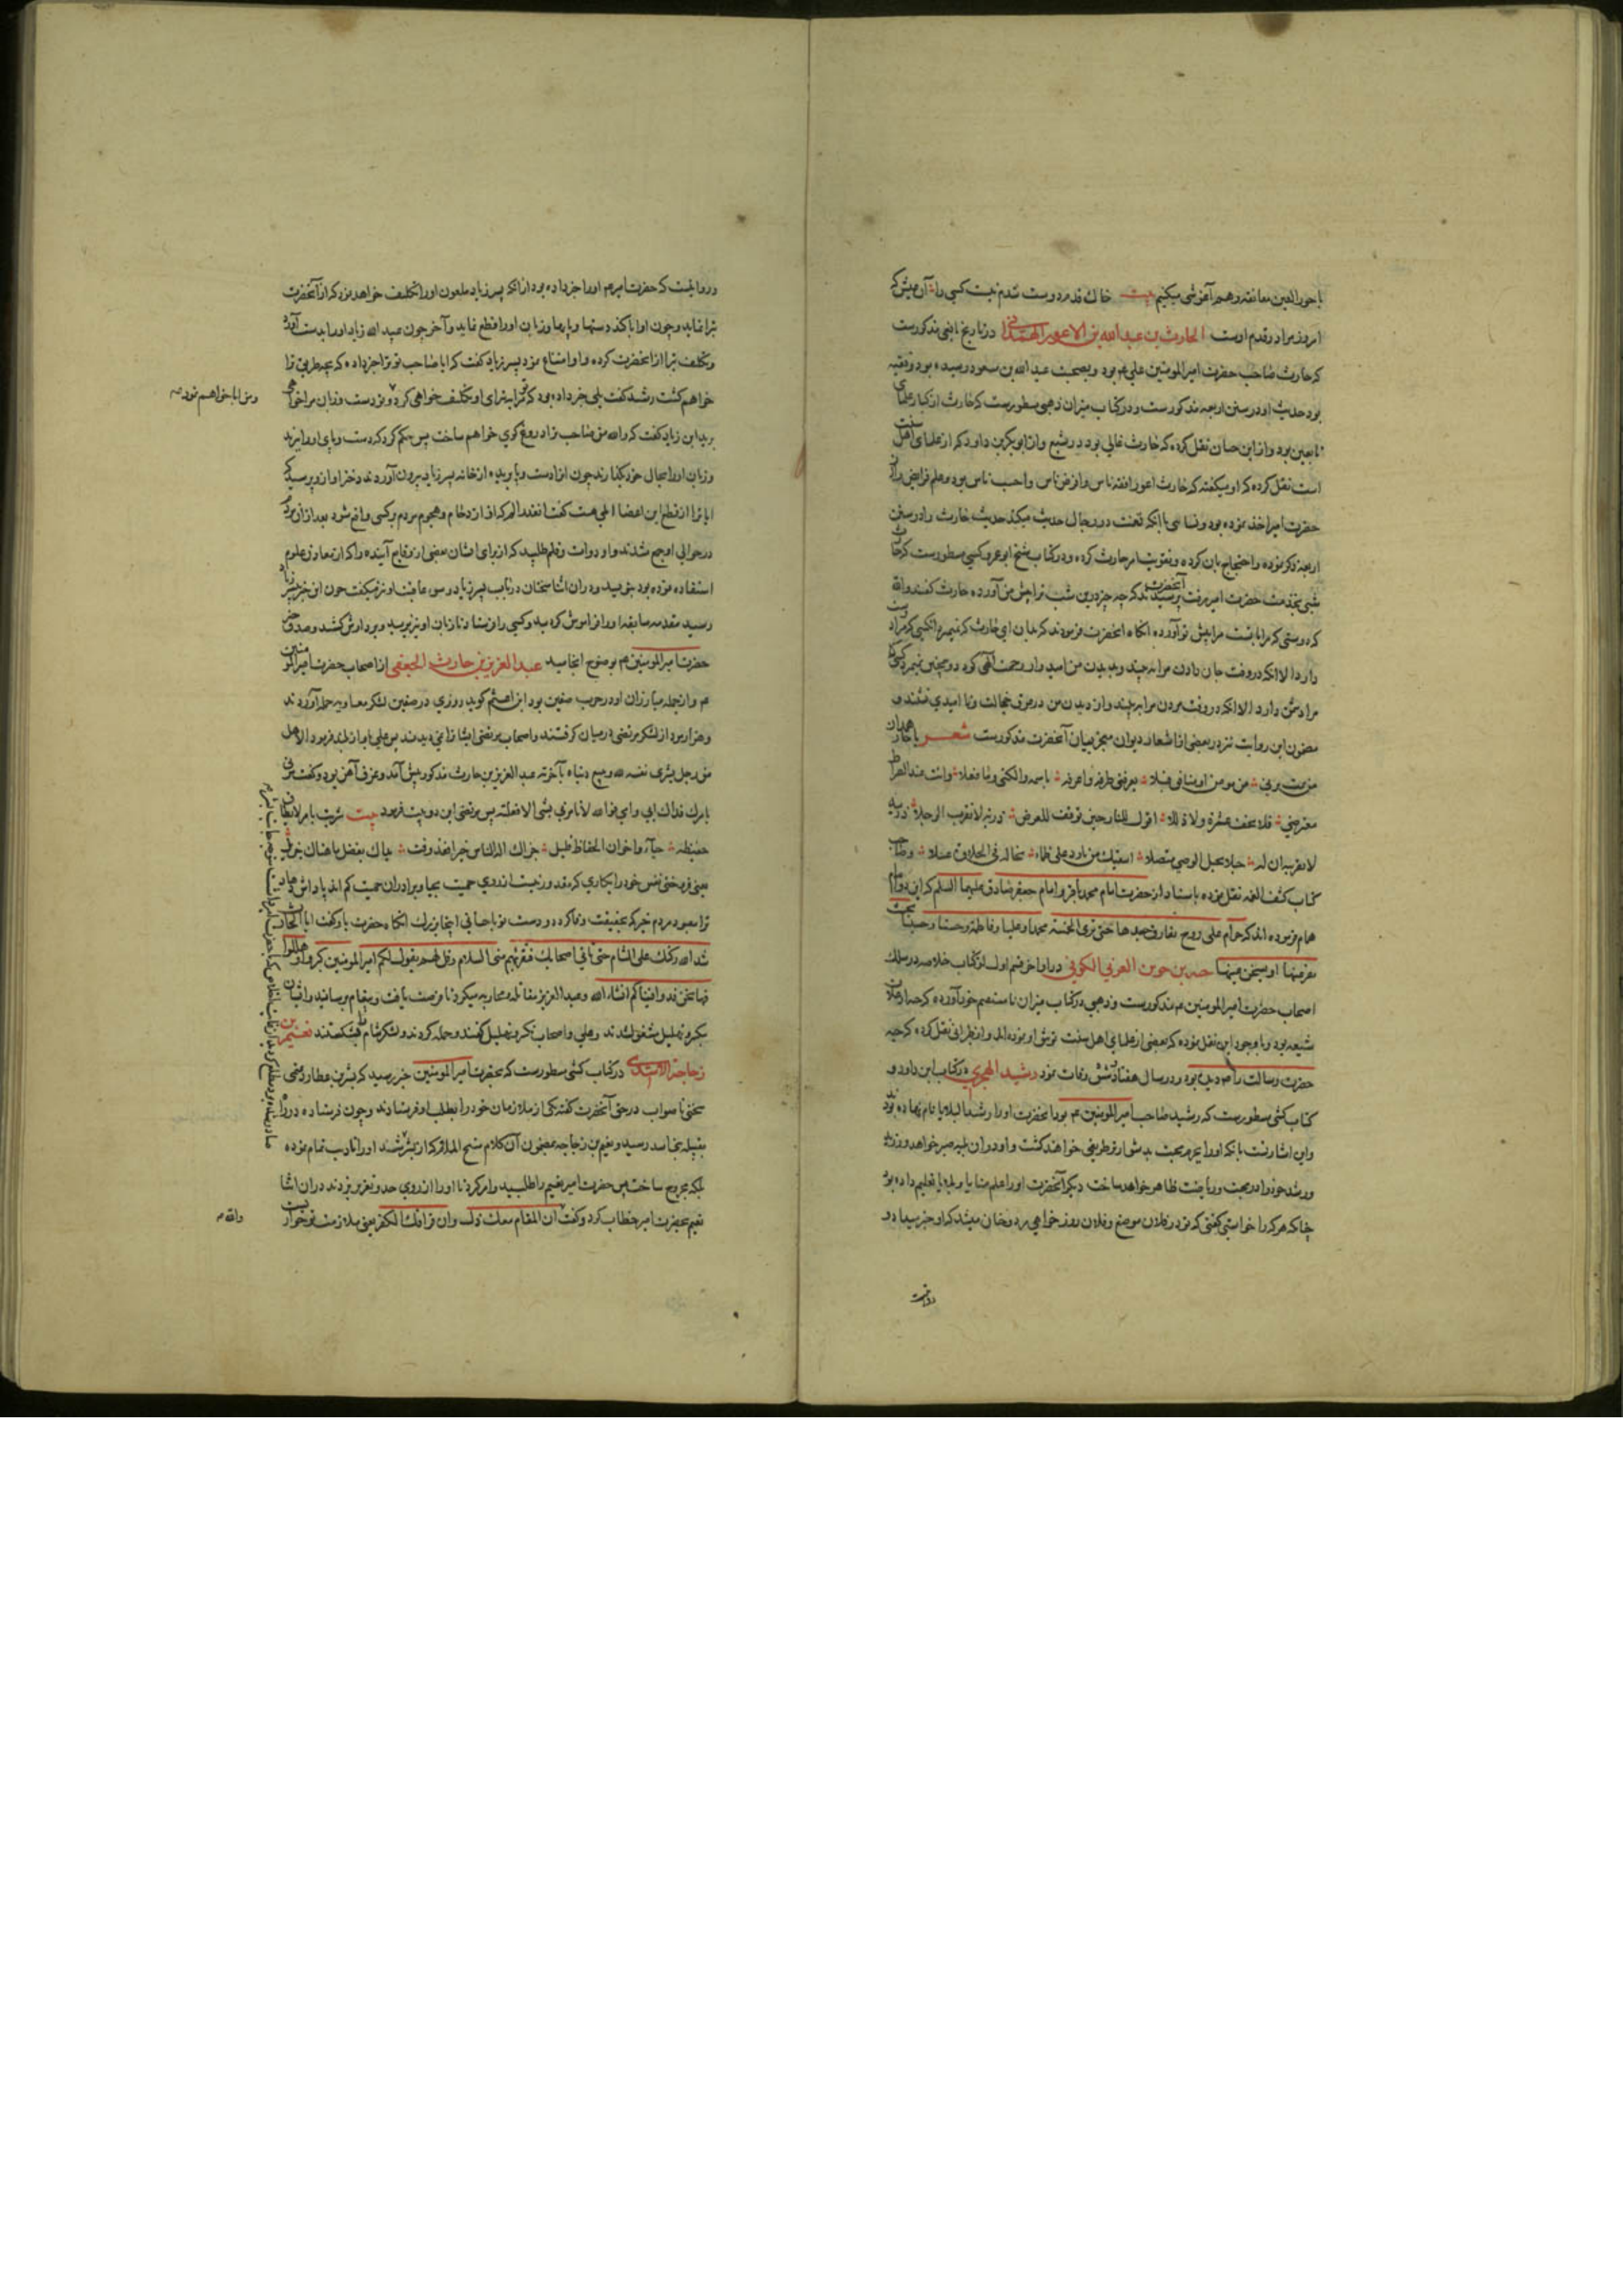 با حور العین معانقه و هم آغوشی میکنیم بیت خاک قدم دوست شدم نیست کسی را آن عیش که
امروز مرا در قدم اوست الحارث بن عبدالله بن الاعور الهمدانی در تاریخ یافعی مذکورست
که حارث صاحب حضرت امیرالمومنین علی عم بود و بصحبت عبدالله بن مسعود رسیده بود و فقیه
بود حدیث او در سنن اربعه مذکورست و در کتاب میزان ذهبی مسطورست که حارث از کبار علمای
تابعین بود و از ابن حبان نقل کرده که حارث غالی بود در تشیع و از ابوبکر بن داود که از علمای اهل سنت
است نقل کرده که او میکفته که حارث اعور افقه ناس و افرض ناس و احسب ناس بود و علم فرایض را از
حضرت امیر اخذ نموده بود و نسائی با آنکه تعنت در رجال حدیث میکند حدیث حارث را در سنن
اربعه ذکر نموده و احتجاج بآن کرده و تقویت امر حارث کرده و در کتاب شیخ ابوعمرو کشی مسطورست که حارث
شبی بخدمت حضرت امیر رفت آنحضرت پرسیدند که چه چیز درین شب ترا پیش من آورده حارث گفت والله
که دوستی که مرا با تست مرا پیش تو آورده انکاه آنحضرت فرمودند که بدان ای حارث که نمیرد آنکسی که مرا دوست
دارد الا انکه در وقت جان دادن مرا به بیند و بدیدن من امیدوار رحمت الهی کردد و همچنین نمیرد کسی که
مرا دشمن دارد الا انکه در وقت مردن مرا به بیند و از دیدن من در عرق خجالت و نا امیدی نشیند و
مضمون این روایت نیز در بعضی از اشعار دیوان معجز بیان آنحضرت مذکورست شعر یا حار همدان
من یمت یرنی من مومن او منافق قبلا یعرفنی طرفه و اعرفه باسمه والکنی وما فعلا وانت عند الصراط
معترضی فلا تخف عثرة ولا زللا اقول للنار حین توقف للعرض ذریه لا تقرب الرجلا ذریه
لا تقربیه ان له حبلا بحبل الوصی متصلا اسقیک من بارد علی ظماء تخاله فی الحلاوة عسلا و صاحب
کتاب کشف الغمه نقل نموده باسناد از حضرت امام محمد باقر و امام جعفر صادق علیهما السلم که این دو امام
همام فرموده اند که حرام علی روح تفارق جسدها حتی تری الخمسة محمدا وعلیا وفاطمة وحسنا وحسینا بحیث
تقر عینها او تسخن عینها حبه بن جوین العرنی الکوفی در اواخر قسم اول از کتاب خلاصه در سلک
اصحاب حضرت امیرالمومنین عم مذکورست و ذهبی در کتاب میزان خود آورده که حبه از غلات
شیعه بود و با وجود این نقل نموده که بعضی از علمای اهل سنت توثیق او نموده اند و از طبرانی نقل کرده که حبه
حضرت رسالت را صلعم دیده بود و در سال هفتاد و شش وفات نمود رشید الهجری در کتاب ابن داود و
کتاب کشی مسطورست که رشید صاحب امیرالمومنین عم بود آنحضرت او را رشید البلایا نام نهاده بود
واین اشارتست بانکه او را بجرم محبت بدشوارتر طریقی خواهند کشت و او در آن بلیه صبر خواهد ورزید
و رشد خود را در محبت و ریاضت ظاهر خواهد ساخت دیکر آنحضرت او را علم منایا و بلایا تعلیم داده بود
چنانکه هر کرا خواستی گفتی که تو در فلان موضع و فلان روز خواهی مرد و چنان میشد که او خبر میداد و
روایتست
و روایتست که حضرت امیر عم او را خبر داده بود از انکه پسر زیاد ملعون او را تکلیف خواهد نمود که از آنحضرت
تبرا نماید و چون او ابا کند دستها و پاها و زبان او را قطع نماید و آخر چون عبید الله زیاد او را بدست آورد
و تکلیف تبرا از آنحضرت کرده و او امتناع نمود پسر زیاد گفت که ایا صاحب تو ترا خبر داده که بچه طریق ترا
خواهم کشت رشید گفت بلی خبر داده بود که تو مرا به تبرای او تکلیف خواهی کرد و تو دست و زبان مرا خواهی
و من ابا خواهم نمود صح
برید ابن زیاد گفت که والله من صاحب ترا دروغ گوی خواهم ساخت پس حکم کرد که دست و پای او را ببرند
و زبان او را بحال خود بگذارند چون او را دست و پا بریده از خانه پسر زیاد بیرون آوردند دختر او از و پرسید که
ایا ترا از قطع این اعضا المی هست گفت آنقدر الم که از ازدحام و هجوم مردم بر کسی واقع شود بعد از آن مردم
در حوالی او جمع شدند و او دوات و قلم طلبید که از برای ایشان بعضی از وقایع آینده را که از معادن علوم
استفاده نموده بود بنویسد و در ان اثنا سخنان در باب پسر زیاد و سوء عاقبت او نیز میکفت چون این خبر بپسر زیاد
رسید مقدمه سابقه او را فراموش گردید و کسی را فرستاد تا زبان او نیز بریدند و بر دارش کشیدند و صدق خبر
حضرت امیرالمومنین عم بوضوح انجامید عبد العزیز بن حارث الجعفی از اصحاب حضرت امیرالمومنین
عم و از جمله مبارزان او در حرب صفین بود ابن اعثم کوید روزی در صفین لشکر معاویه حمله آوردند
و هزار مرد از لشکر مرتضی در میان گرفتند و اصحاب مرتضی ایشان را نمی دیدند پس علی باواز بلند فرمود الا هل
من رجل یشری نفسه لله و یبیع دنیاه بآخرته عبدالعزیز بن حارث مذکور پیش آمد و غرق آهن بود و گفت مرنی
بامرک فداک ابی وامی فوالله لا تامرنی بشی الا فعلته پس مرتضی این دو بیت فرمود بیت شریت بامر لا یطاق
حفیظة حیاء واخوان الحفاظ قلیل جزاک اله الناس خیرا فقد وفت یداک بفضل ما هناک جزیل
یعنی فروختی نفس خود را بکاری که مقدور نیست از روی حمیت بحیا و برادران حمیت کم اند پاداش دهاد
ترا معبود مردم خیر که بحقیقت وفا کرد دو دست تو باحسانی اینجا بزرک انکاه حضرت با و گفت ایا ابا الحارث
شد الله رکنک علی الشام حتی تاتی اصحابک فتقرئهم منی السلام وتقل لهم یقول لکم امیرالمومنین کبروا وهللوا
فها نحن قد وافیناکم انشاء الله و عبدالعزیز مقاتله و محاربه میکرد تا فرصت یافت و پیغام برسانید و ایشان
بتکبیر و تهلیل مشغول شدند و علی و اصحاب تکبیر و تهلیل گفتند و حمله کردند و لشکر شام را بشکستند نعیم بن
دجاجة الاسدی در کتاب کشی مسطورست که بحضرت امیرالمومنین خبر رسید که بشر بن عطارد تمیمی
سخنی ناصواب در حق آنحضرت گفته یکی از ملازمان خود را بطلب او فرستادند و چون فرستاده او را
بقبیله بنی اسد رسید و نعیم بن دجاجه
بلکه مجروح ساخت پس حضرت امیر نعیم را طلبید و امر کرد تا او را از روی حد و تعزیر بزدند در ان اثنا
نعیم بحضرت امیر خطاب کرد و گفت ان المقام معک لذل وان فراقک لکفر یعنی ملازمت تو خواریست
والله صح